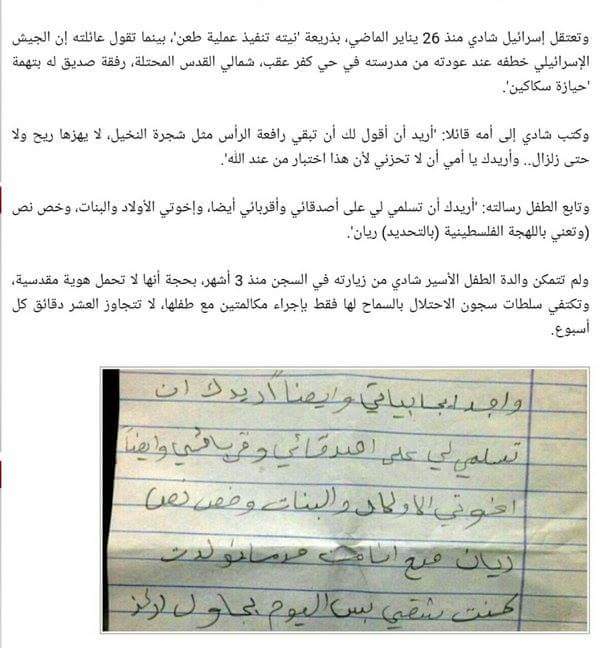 وتعتقل إسرائيل شادي منذ 26 يناير الماضي، بذريعة 'نيته تنفيذ عملية طعن'، بينما تقول عائلته إن الجيش
الإسرائيلي خطفه عند عودته من مدرسته في حي كفر عقب، شمالي القدس المحتلة، رفقة صديق له بتهمة
'حيازة سكاكين'.
وكتب شادي إلى أمه قائلا: 'أريد أن أقول لك أن تبقي رافعة الرأس مثل شجرة النخيل، لا يهزها ريح ولا
حتى زلزال.. وأريدك يا أمي أن لا تحزني لأن هذا اختبار من عند الله'.
وتابع الطفل رسالته: 'أريدك أن تسلمي لي على أصدقائي وأقربائي أيضا، وإخوتي الأولاد والبنات، وخص نص
(وتعني باللهجة الفلسطينية (بالتحديد) ريان'.
ولم تتمكن والدة الطفل الأسير شادي من زيارته في السجن منذ 3 أشهر، بحجة أنها لا تحمل هوية مقدسية،
وتكتفي سلطات سجون الاحتلال بالسماح لها فقط بإجراء مكالمتين مع طفلها، لا تتجاوز العشر دقائق كل
أسبوع.
وايضاً اريدك ان
تسلمي لي على اصدقائي وقربائي وايضاً
اخوتي الاولاد والبنات وخص نص
ريان
كنت بس اليوم